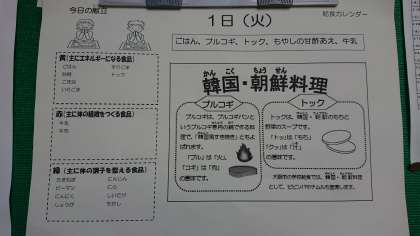 今日の献立
給食カレンダー
1日（火）
ごはん、プルコギ、トック、もやしの甘酢あえ、牛乳
黄(主にエネルギーになる食品)
ごはん
トック
ごま油
赤(主に体の組織をつくる食品)
牛乳
牛肉
緑(主に体の調子を整える食品)
たまねぎ にんじん
ピーマン にら
にんにく しいたけ
しょうが もやし
かん こく ちょう せん
韓国・朝鮮料理
プルコギ
プルコギは、プルコギパンと
いうプルコギ専用の鍋で作る料
理で、「韓国風すき焼き」ともよ
ばれます。
「プル」は「火」、
「コギ」は「肉」
の意味です。
トック
トックは、韓国・朝鮮のもちと
野菜のスープです。
「トッ」は「もち」
「クッ」は「汁」
の意味です。
大阪市の学校給食では、韓国・朝鮮料理
として、ビビンバやチヂムも登場します。